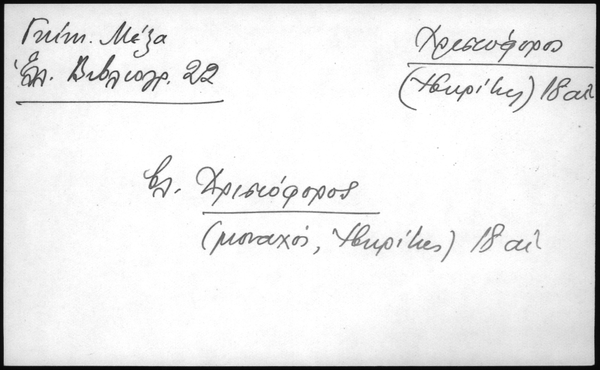 Γκίκη. Μέξα
Ἑλ. Βιβλιογρ. 22
Χριστόφορος
(Ἰβηρίτης) 18 αἰ
βλ. Χριστόφορος
(μοναχός, Ἰβηρίτης) 18 αἰ